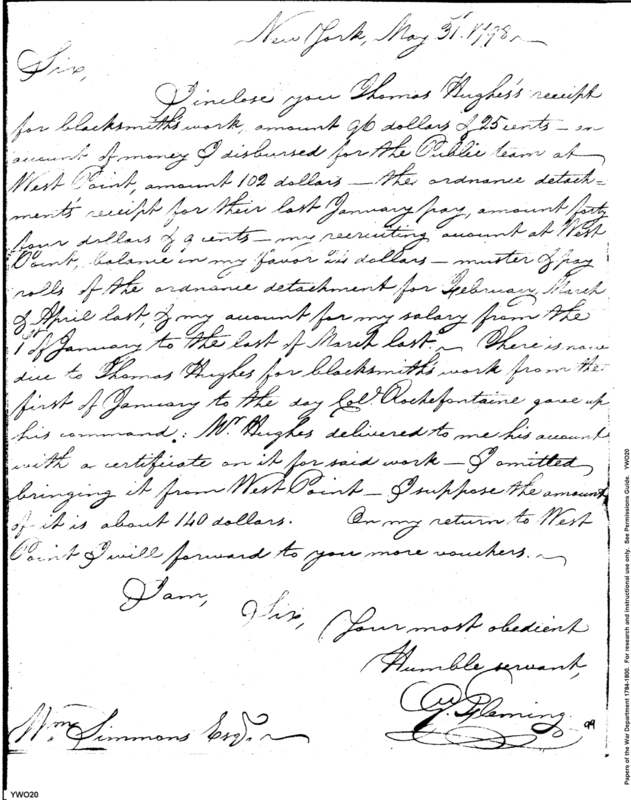 New York, May 31st 1798.
Sir,
I inclose you Thomas Hughes's receipt
for blacksmiths work, amount 96 dollars & 25 cents — an
account of money I disbursed for the Public team at
West Point, amount 102 dollars — the ordnance detach-
ment's receipt for their last January pay, amount forty
four dollars & 9 cents — my recruiting account at West
Point, balance in my favor dollars — muster & pay
rolls of the ordnance detachment for February, March
& April last, & my account for my salary from the
1st of January to the last of March last. There is now
due to Thomas Hughes for blacksmiths work from the
first of January to the day Colo. Rochefontaine gave up
his command: Mr. Hughes delivered to me his account
with a certificate on it for said work — I omitted
bringing it from West Point — I suppose the amount
of it is about 140 dollars. On my return to West
Point I will forward to you more vouchers.
I am,
Sir,
Your most obedient
Humble servant,
G. Fleming
99
Wm. Simmons Esqr.
YWO20
Papers of the War Department 1784-1800. For research and instructional use only. See Permissions Guide. YWO20